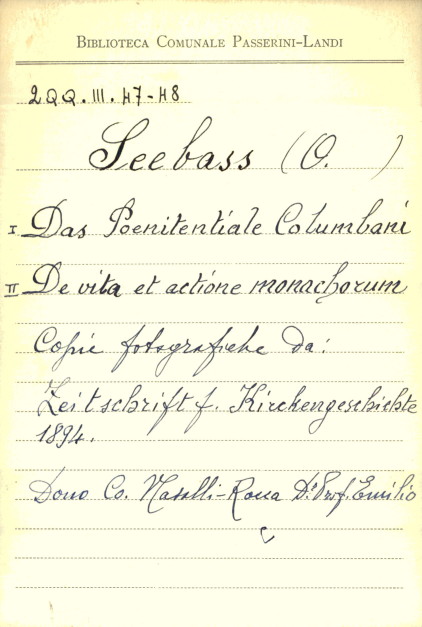 BIBLIOTECA COMUNALE PASSERINI-LANDI
2QQ. III. 47-48
Seebass (O. )
I Das Poenitentiale Columbani
II De vita et actione monachorum
Copie fotografiche da:
Zeitschrift f. Kirchengeschichte
1894.
Dono Co. Nasalli-Rocca Dr Prof. Emilio